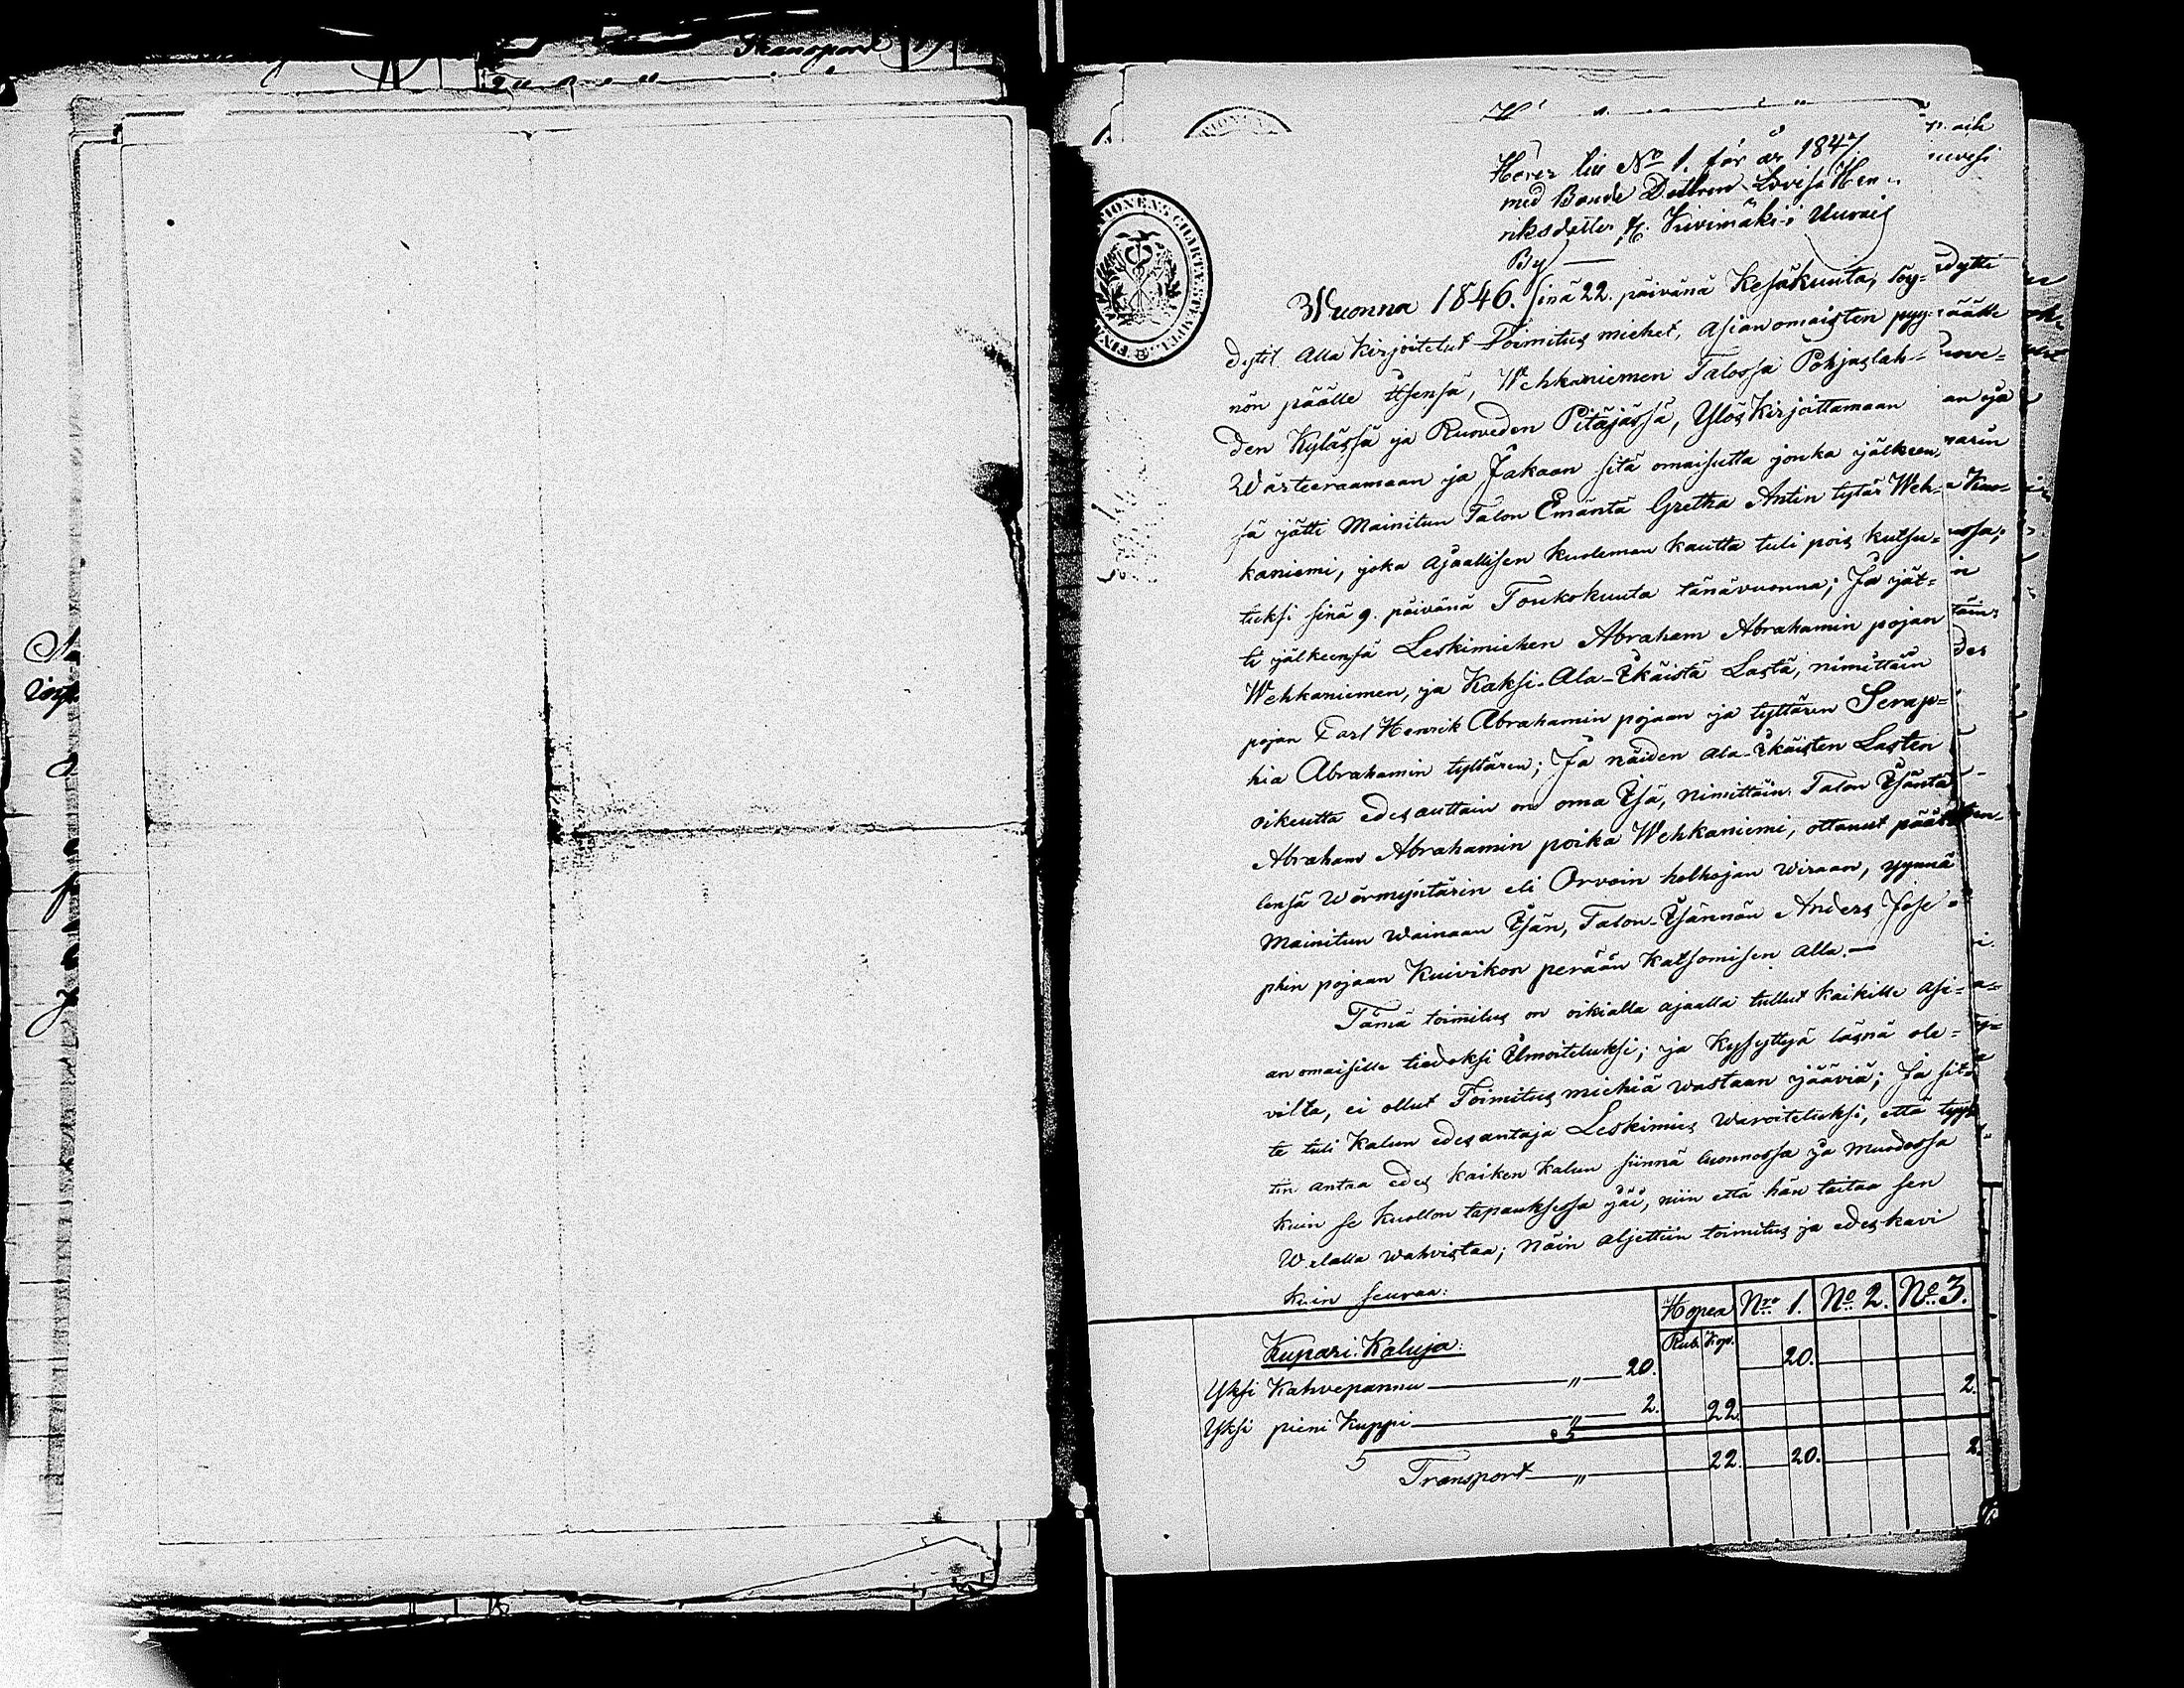 Transport
Hörer till No 1. för år 1847
med Bonde Dottren Lovisa Hen-
riksdotter fr. Kivimäki i Ururais
By
Wuonna 1846. sinä 22. päivänä Kesäkuuta, löy-
dytit Alla Kirjoitetut Toimitus miehet, asian omaisten pyy-
nön päälle Itsensä, Wehkaniemen Talossa Pohjaslah-
den Kylässä ja Ruoveden Pitäjässä, Ylös Kirjoittamaan
Wärteeraamaan ja Jakaan sitä omaisutta jonka jälkeen-
sä jätti Mainitun Talon Emäntä Gretha Antin tytär Weh-
kaniemi, joka Ajaallisen kuoleman kautta tuli pois kutsu-
tuksi sinä 9. päivänä Toukokuuta tänävuonna; Ja jät-
ti jälkeensä Leskimiehen Abraham Abrahamin pojan
Wehkaniemen, ja Kaksi Ala-Ikäistä Lasta, nimittäin
pojan Carl Henrik Abrahamin pojaan ja tyttären Serap-
hia Abrahamin tyttären; Ja näiden ala-Ikäisten Lasten
oikeutta edesauttain on oma Isä, nimittäin Talon Isäntä
Abraham Abrahamin poika Wehkaniemi, ottanut pääl-
lensä Wörmyntärin eli Orvoin holhojan Wiraan, ynnä
Mainitun Wainaan Isän, Talon-Isännän Anders Jose-
phin pojaan Kuivikon perään Katsomisen Alla.—
Tämä toimitus on oikialla ajaalla tullut Kaikille Asi-
an omaisille tiedoksi Ilmoitetuksi; ja Kysyttyä läsnä ole-
vilta, ei ollut Toimitus miehiä wastaan jääviä; Ja sit-
te tuli Kalun edesantaja Leskimies Waroitetuksi, että
tin antaa edes Kaiken Kalun siinnä luonnossa ja Muodossa
kuin se Kuollon tapauksessa jäi, niin että hän taitaa sen
Walalla Wahvistaa; Näin Aljettiin toimitus ja edeskävi
kuin seuraa:
Hopea No 1. No 2. No 3.
Kupari Kaluja: Rub. Kop.
Yksi Kahvepannu — " — 20. 20.
Yksi pieni Kuppi — " — 2. 22. 2.
Transport — " 22. 20. 2.